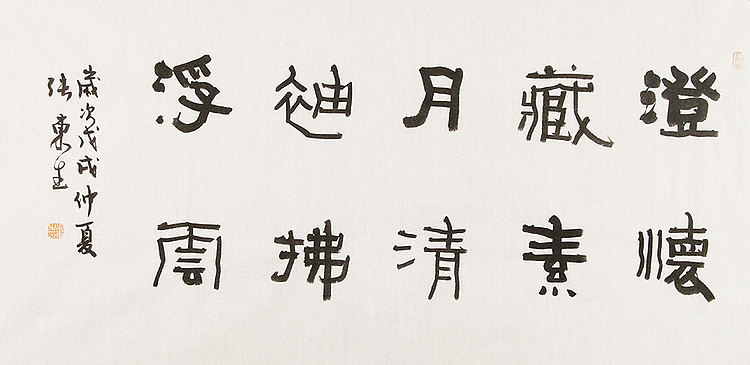 澄懷
藏素
月清
袖拂
浮雲
歲次戊戌仲夏
張東生